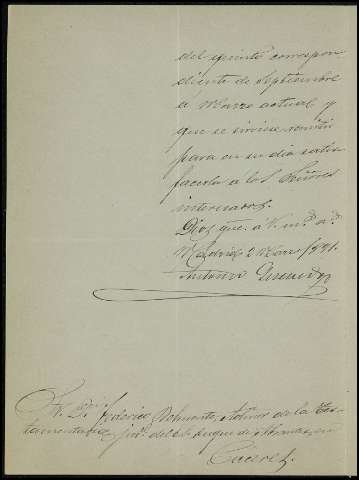 del quinto correspon-
diente de Septiembre
á Marzo actual y
que se sirvió remitir
para en su dia satis-
facerla á los Señores
interesados.
Dios gue. á V. ms. as.
Madrid 2 Marzo 1891.
Antonio
Sr. Dn. Federico Belmonte, de la Tes-
tamentaria del Duque de
Caceres.